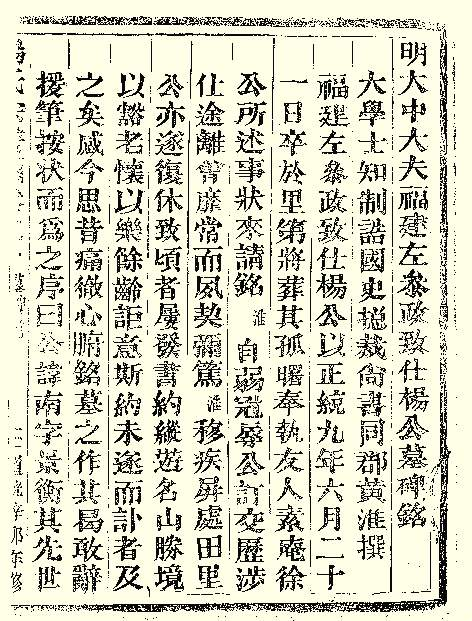 明大中大夫福建左參政致仕楊公墓碑銘
大學士知制誥國史總裁尚書同郡黃淮撰
福建左參政致仕楊公以正統九年六月二十
一日卒於里第將葬其孤曙奉執友人素庵徐
公所述事狀來請銘淮自弱冠辱公訂交歷涉
仕途離會靡常而夙契彌篤淮移疾屏處田里
公亦遂復休致頃者屢發書約縱遊名山勝境
以豁老懷以樂餘齡詎意斯約未遂而訃者及
之矣感今思昔痛徹心腑銘墓之作其曷敢辭
援筆按狀而爲之序曰公諱南字景衡其先世